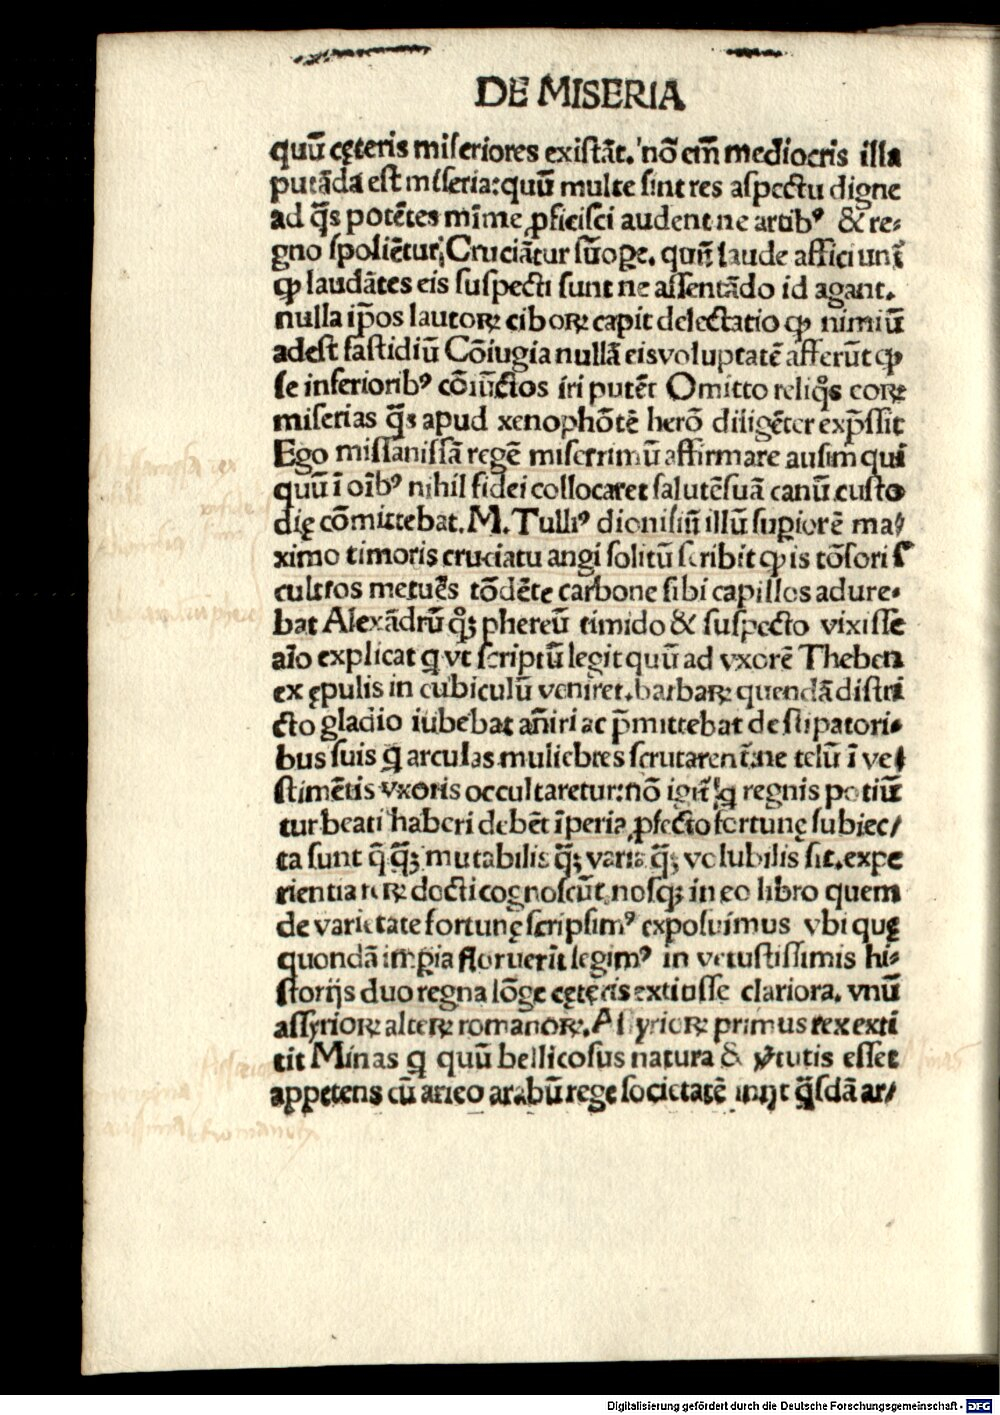 DE MISERIA
quū cęteris miſeriores exiſtāt. nō em̄ mediocris illa
putāda eſt miſeria: quū multe ſint res aſpectu digne
ad q̄s potētes mīme ꝓficiſci audent ne artibꝰ & re-
gno ſpoliētur. Cruciātur ſuoꝙe. quū laude affici unt̄
ꝙ laudātes eis ſuſpecti ſunt ne aſſentādo id agant.
nulla ip̄os lautoꝝ ciboꝝ capit delectatio ꝙ nimiū
adeſt faſtidiū Cōiugia nullā eis voluptatē afferūt ꝙ
ſe inferioribꝰ cōiūctos iri putēt Omitto reliq̊s eoꝝ
miſerias q̄s apud xenophōtē herō diligēter exp̄ſſit
Ego miſſaniſſā regē miſerrimū affirmare auſim qui
quū ī oībꝰ nihil fidei collocaret ſalutē ſuā canū cuſto
dię cōmittebat. M. Tulliꝰ dioniſiū illū ſupiorē ma/
ximo timoris cruciatu angi ſolitū ſcribit ꝙ is tōſori ſ
cultros metuēs tōdēte carbone ſibi capillos adure-
bat Alexādrū q̊ꝫ phereū timido & ſuſpecto vixiſſe
aīo explicat q vt ſcriptū legit quū ad vxorē Theben
ex ępulis in cubiculū veniret. barbaꝝ quendā diſtri
cto gladio iubebat an̄iri ac p̄mittebat de ſtipatori-
bus ſuis q arculas muliebres ſcrutarent̄. ne telū ī ve/
ſtimētis vxoris occultaretur: nō igit̄ q regnis potiū
tur beati haberi debēt īperia ꝓfecto fortunę ſubiec/
ta ſunt q̄ q̄ꝫ mutabilis q̄ꝫ varia q̄ꝫ volubilis ſit. expe
rientia reꝝ docti cognoſcūt noſqꝫ in eo libro quem
de varietate fortunę ſcripſimꝰ expoſuimus vbi quę
quondā impia floruerīt legimꝰ in vetuſtiſſimis hi-
ſtorijs duo regna lōge cęteris extitiſſe clariora. vnū
aſſyrioꝝ alteꝝ romanoꝝ. Aſſyrioꝝ primus rex exti
tit Minas q quū bellicoſus natura & v̄tutis eſſet
appetens cū arieo arabū rege ſocietatē inijt q̄ſdā ar/
Minas
Romanoꝝ
Digitalisierung gefördert durch die Deutsche Forschungsgemeinschaft - DFG